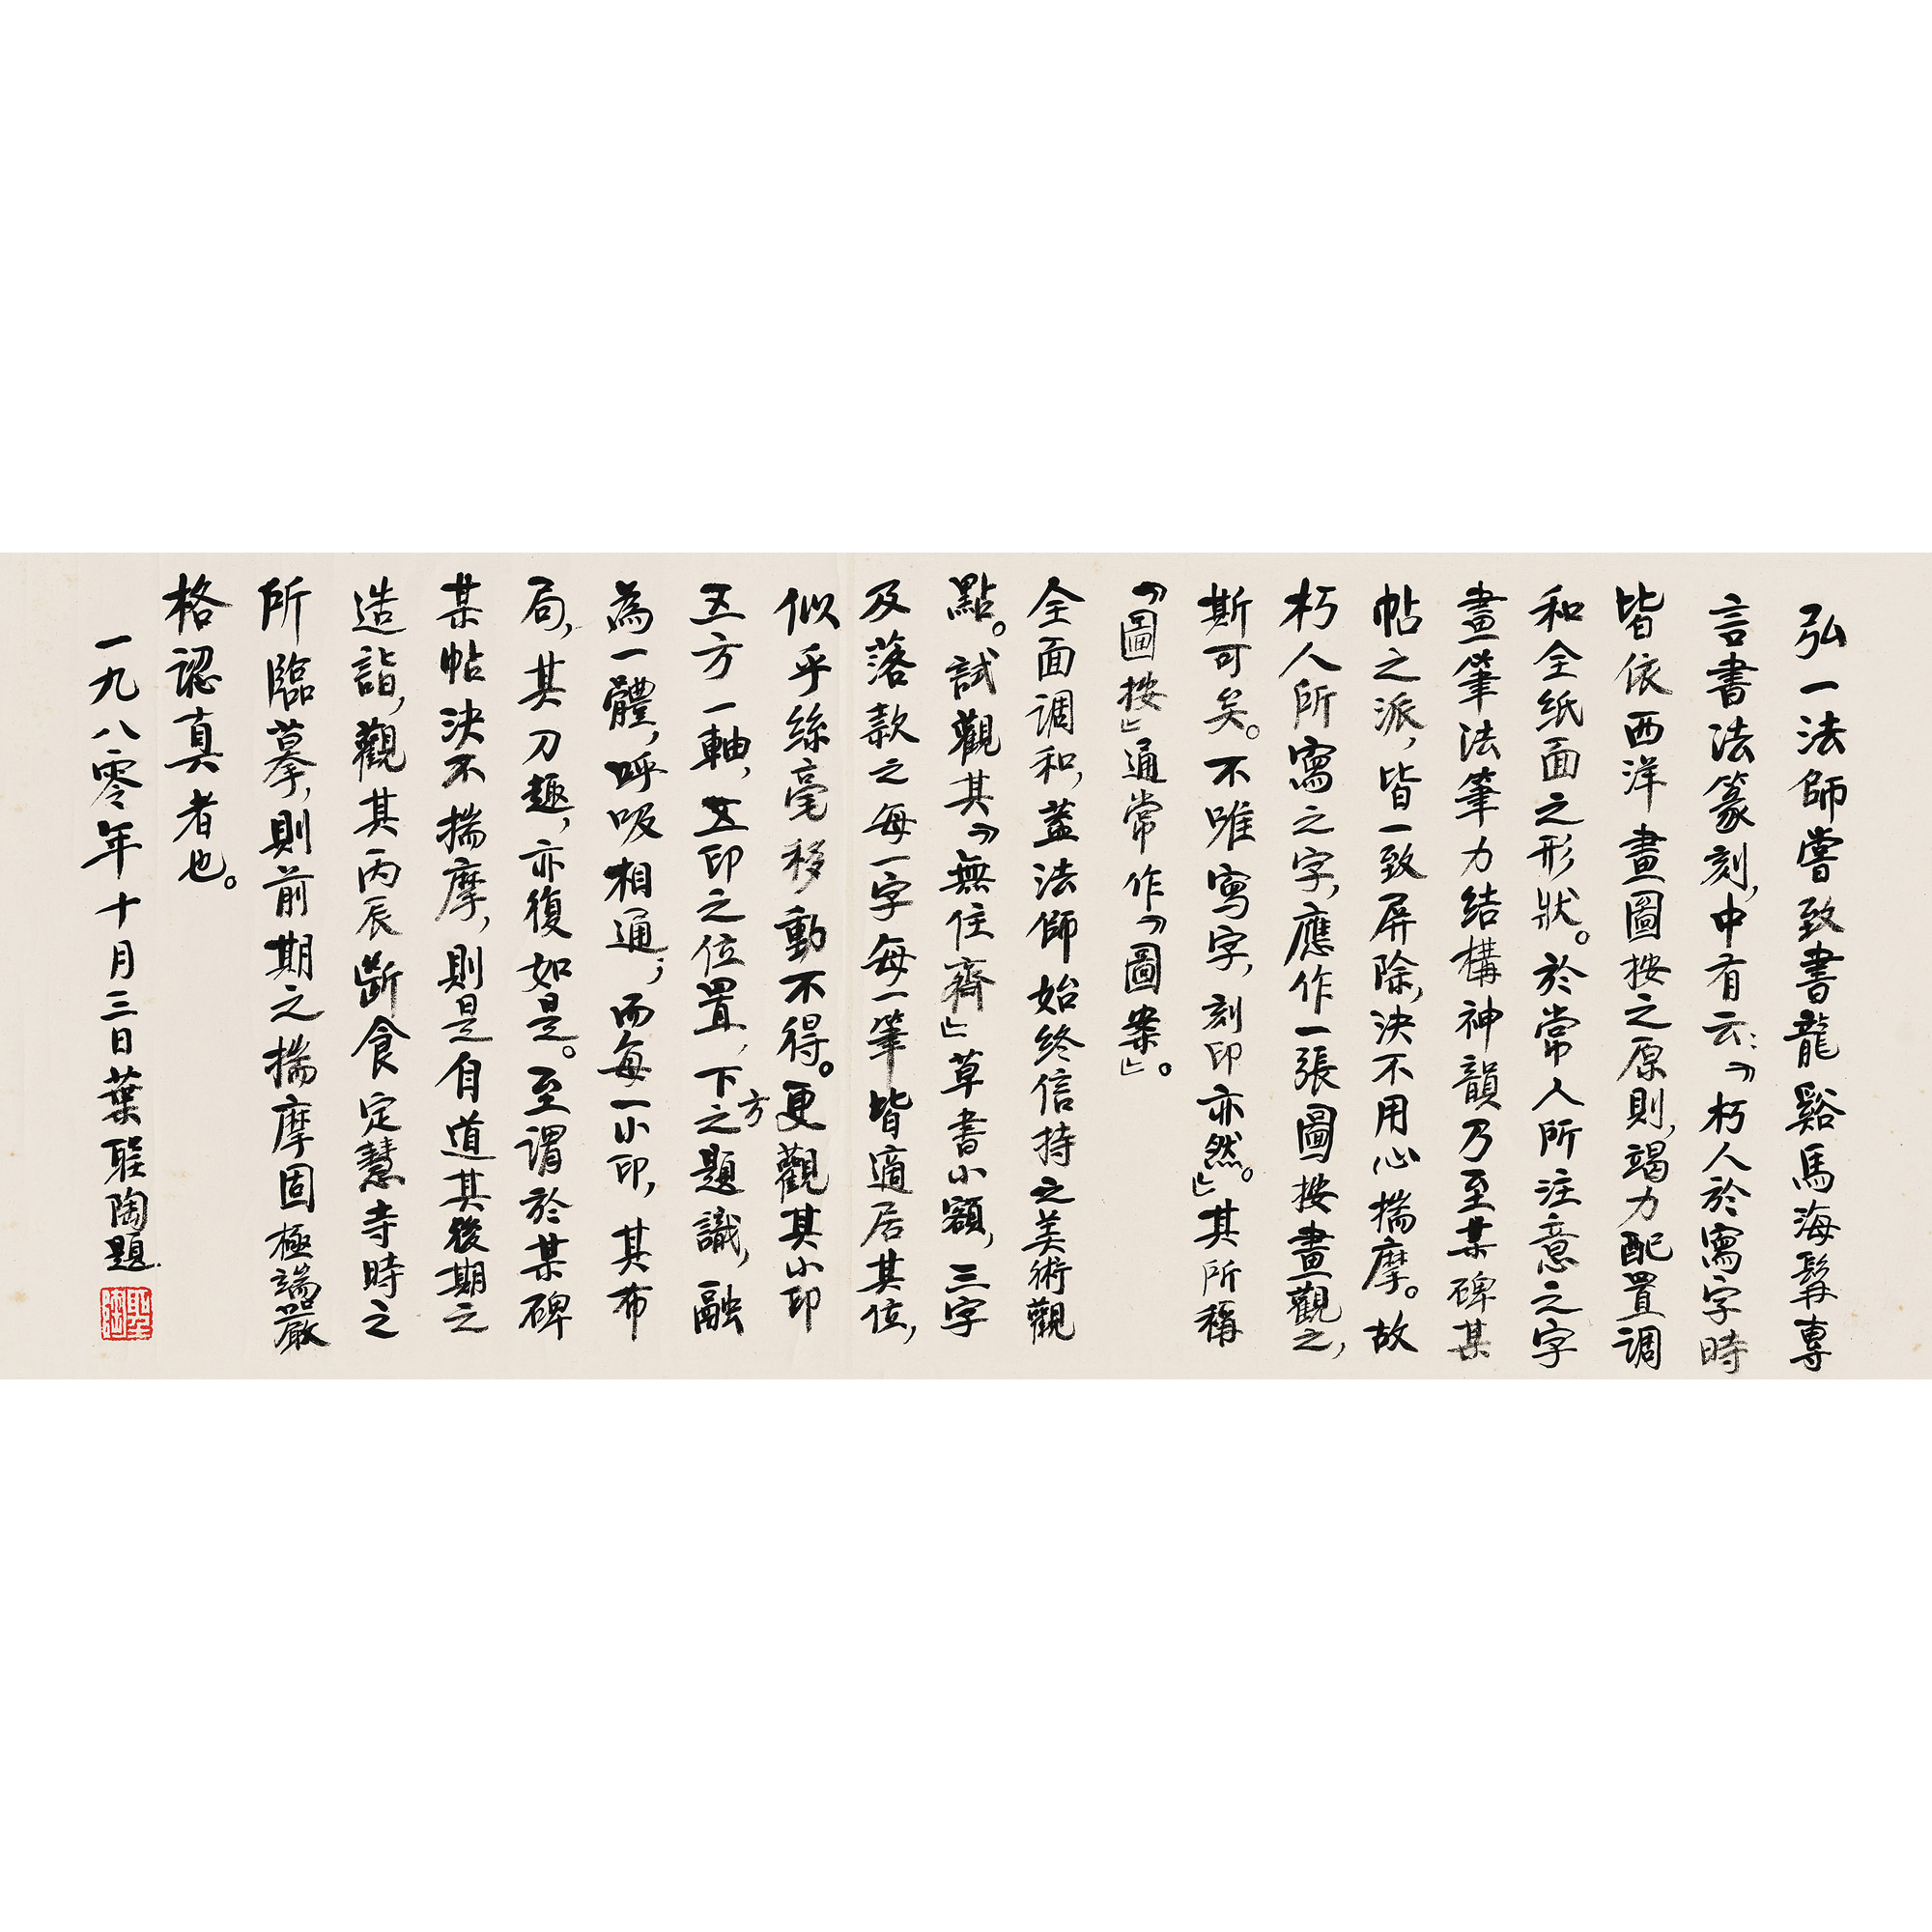 弘一法師嘗致書龍谿馬海髯專
言書法篆刻，中有云：「朽人於寫字時
皆依西洋畫圖按之原則，竭力配置調
和全紙面之形狀。於常人所注意之字
畫筆法筆力結構神韻乃至某碑某
帖之派，皆一致屏除，決不用心揣摩。故
朽人所寫之字，應作一張圖按畫觀之，
斯可矣。不唯寫字，刻印亦然。」其所稱
「圖按」通常作「圖案」。
全面調和，蓋法師始終信持之美術觀
點。試觀其「無住齋」草書小額，三字
及落款之每一字每一筆皆適居其位，
似乎絲毫移動不得。更觀其小印
五方一軸，五印之位置，下方之題識，融
為一體，呼吸相通；而每一小印，其布
局，其刀趣，亦復如是。至謂於某碑
某帖決不揣摩，則是自道其後期之
造詣，觀其丙辰斷食定慧寺時之
所臨摹，則前期之揣摩固極端嚴
格認真者也。
一九八零年十月三日葉聖陶題
聖陶